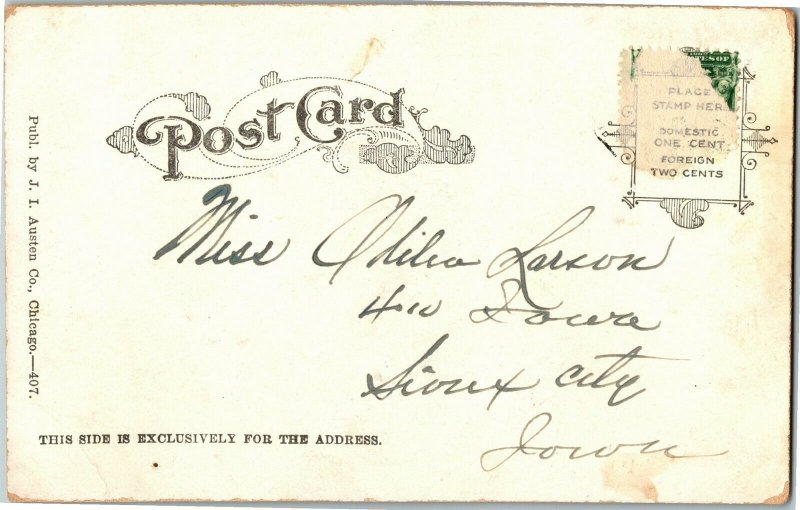 Post Card
ES OF
PLACE
STAMP HER
DOMESTIC
ONE CENT
FOREIGN
TWO CENTS
Publ. by J. I. Austen Co., Chicago.—407.
Miss Larson
410
Sioux City
Iowa
THIS SIDE IS EXCLUSIVELY FOR THE ADDRESS.